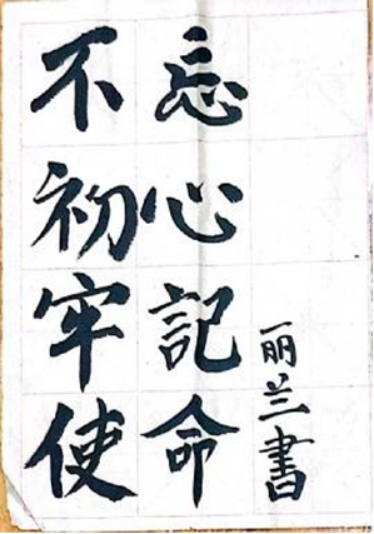 不忘
初心
牢記
使命
丽兰書